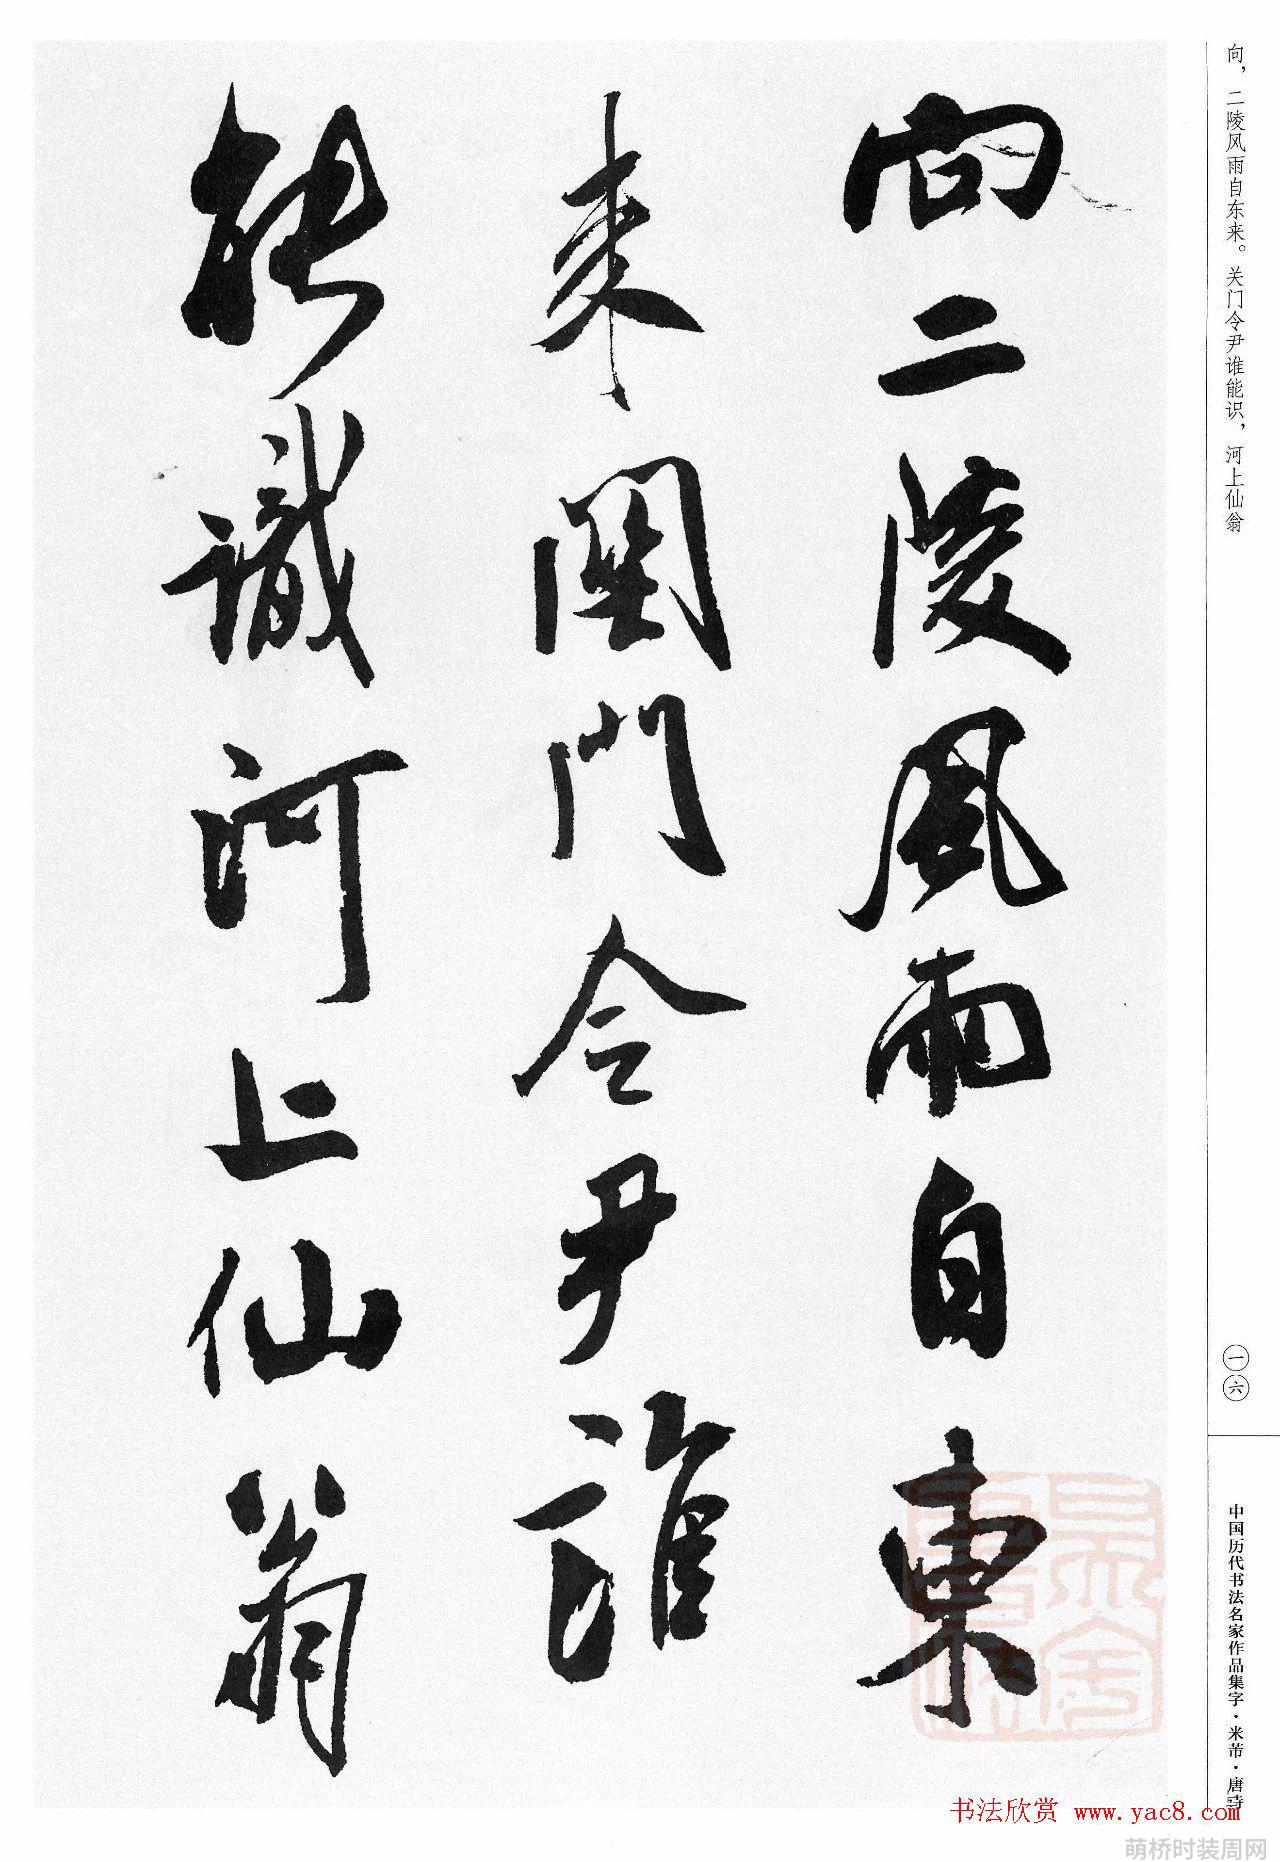 向，二陵风雨自东来。关门令尹谁能识，河上仙翁
向二陵風雨自東
来關門令尹誰
能識河上仙翁
一六
中国历代书法名家作品集字·米芾·唐诗
书法欣赏 www.yac8.com
萌桥时装周网